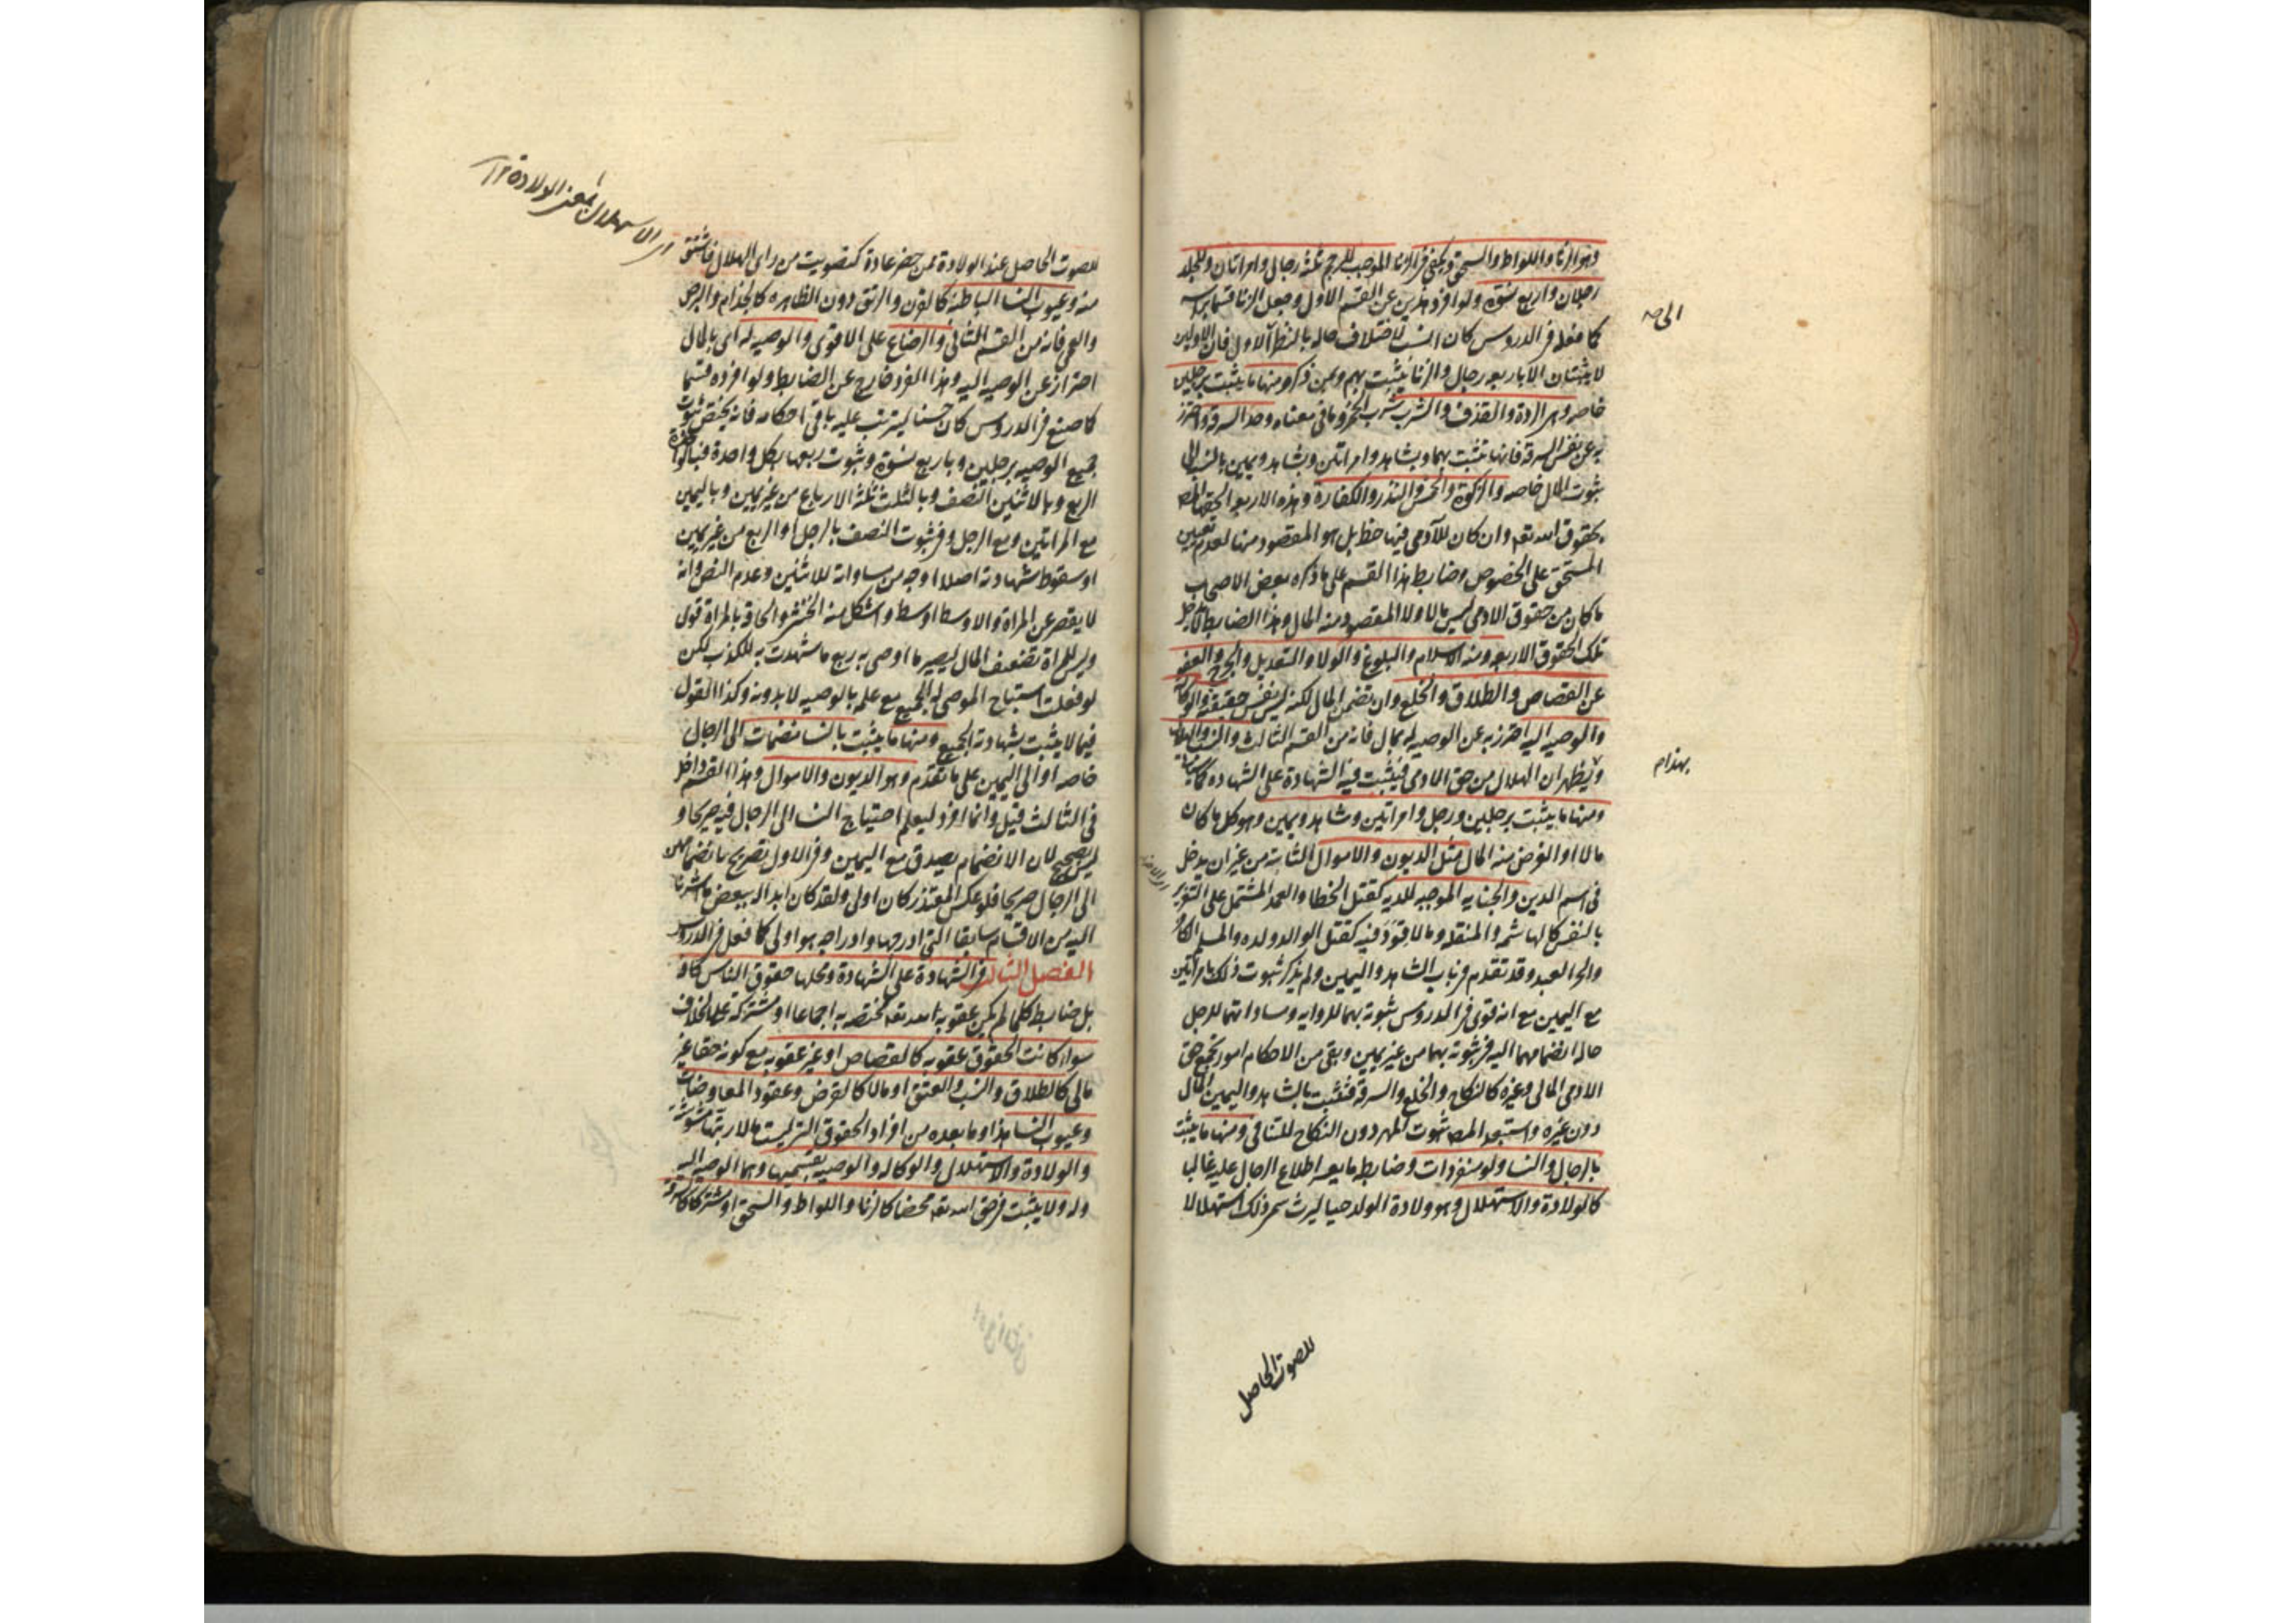 وهو الزنا واللواط والسحق ويكفى فى الزنا الموجب للرجم ثلثة رجال وامراتان وللجلد
رجلان واربع نسوة ولو افرد هذين عن القسم الاول وجعل الزنا قسما براسه
كما فعل فى الدروس كان انسب لاختلاف حاله بالنظر الى الاول فان الاولين
لا يثبتان الا باربعه رجال والزنا يثبت بهم وبمن ذكر ومنها ما يثبت برجلين
خاصه وهى الردة والقذف والشرب شرب الخمر وما فى معناه وحد السرقه واحترز
به عن نفس السرقه فانها تثبت بهما وبشاهد وامراتين وبشاهد ويمين بالنسبه الى
ثبوت المال خاصه والزكوة والخمس والنذر والكفارة وهذه الاربعه الحقها المصه
بحقوق الله تعه وان كان للآدمى فيها حظ بل هو المقصود منها لعدم تعيين
المستحق على الخصوص وضابط هذا القسم على ما ذكره بعض الاصحاب
ما كان من حقوق الادمى ليس مالا ولا المقصود منه المال وهذا الضابط لا يدخل
تلك الحقوق الاربعه ومنه الاسلام والبلوغ والولاء والتعديل والجرح والعفو
عن القصاص والطلاق والخلع وان تضمن المال لكنه ليس نفس حقيقته والوكالة
والوصيه اليه احترز به عن الوصيه له بمال فانه من القسم الثالث والنسب والهلال
ويظهر ان الهلال من حق الادمى فيثبت فيه الشهادة على الشهاده كما سياتى
ومنها ما يثبت برجلين ورجل وامراتين وشاهد ويمين وهو كل ما كان
مالا او الغرض منه المال مثل الديون والاموال الثابته من غير ان يدخل
فى اسم الدين والجنايه الموجبه للديه كقتل الخطا والعمد المشتمل على التغرير
بالنفس كالهاشمه والمنقله وما لا قود فيه كقتل الوالد ولده والمسلم الكافر
والحر العبد وقد تقدم فى باب الشاهد واليمين ولم يذكر ثبوت ذلك بامراتين
مع اليمين مع انه قوى فى الدروس ثبوته بهما للروايه ومساواتهما للرجل
حاله انضمامهما اليه فى ثبوته بهما من غير يمين وبقى من الاحكام امور تجمع حق
الادمى المالى وغيره كالنكاح والخلع والسرقه فتثبت بالشاهد واليمين المال
دون غيره واستبعد المصه ثبوت المهر دون النكاح للتنافى ومنها ما يثبت
بالرجال والنساء ولو منفردات وضابطه ما يعسر اطلاع الرجال عليه غالبا
كالولادة والاستهلال وهو ولادة الولد حيا ليرث سمى ذلك استهلالا
للصوت الحاصل
بهذا م
اى الاستهلال بمعنى الولادة ١٢
للصوت الحاصل عند الولادة ممن حضر عادة كتصويت من راى الهلال فاشتق
منه وعيوب النساء الباطنه كالقرن والرتق دون الظاهره كالجذام والبرص
والعمى فانه من القسم الثانى والرضاع على الاقوى والوصيه له اى بالمال
احتراز عن الوصيه اليه وهذا الفرد خارج عن الضابط ولو افرده قسما
كما صنع فى الدروس كان حسنا ليترتب عليه باقى احكامه فانه يختص ثبوت
جميع الوصيه برجلين وباربع نسوة وثبوت ربعها بكل واحدة فبالواحدة
الربع وبالاثنين النصف وبالثلث ثلثة الارباع من غير يمين وباليمين
مع المراتين ومع الرجل وفى ثبوت النصف بالرجل او الربع من غير يمين
او سقوط شهادته اصلا اوجه من مساواته للاثنين وعدم النص وانه
لا يقصر عن المراة والاوسط اوسط واشكل منه الخنثى والحاقه بالمراة قوى
وليس للمراة تضعيف المال ليصير ما اوصى به ربع ما شهدت به للكذب لكن
لو فعلت استباح الموصى له الجميع مع علمه بالوصيه لا بدونه وكذا القول
فيما لا يثبت بشهادته الجميع ومنها ما يثبت بالنساء منضمات الى الرجال
خاصه او الى اليمين على ما تقدم وهو الديون والاموال وهذا القسم داخل
فى الثالث قيل وانما افرد ليعلم احتياج النساء الى الرجال فيه صريحا و
ليس بصحيح لان الانضمام يصدق مع اليمين وفى الاول تصريح بانضمامهن
الى الرجال صريحا فلو عكس المعتذر كان اولى ولقد كان ابداله ببعض ما اشرنا
اليه من الاقسام سابقا التى ادرجها وادراجه هو اولى كما فعل فى الدروس
الفصل الثالث فى الشهادة على الشهادة ومحلها حقوق الناس كافه
بل ضابطه كلما لم يكن عقوبة لله تعه مختصه به اجماعا او مشتركه على الخلاف
سواء كانت الحقوق عقوبه كالقصاص او غير عقوبه مع كونه حقا غير
مالى كالطلاق والنسب والعتق او مالا كالقرض وعقود المعاوضات
وعيوب النساء هذا وما بعده من افراد الحقوق التى ليست مالا رتبها مشوشة
والولادة والاستهلال والوكاله والوصيه بقسميها وهما الوصيه اليه
وله ولا يثبت فى حق الله تعه محضا كالزنا واللواط والسحق او مشتركا كالسرقه